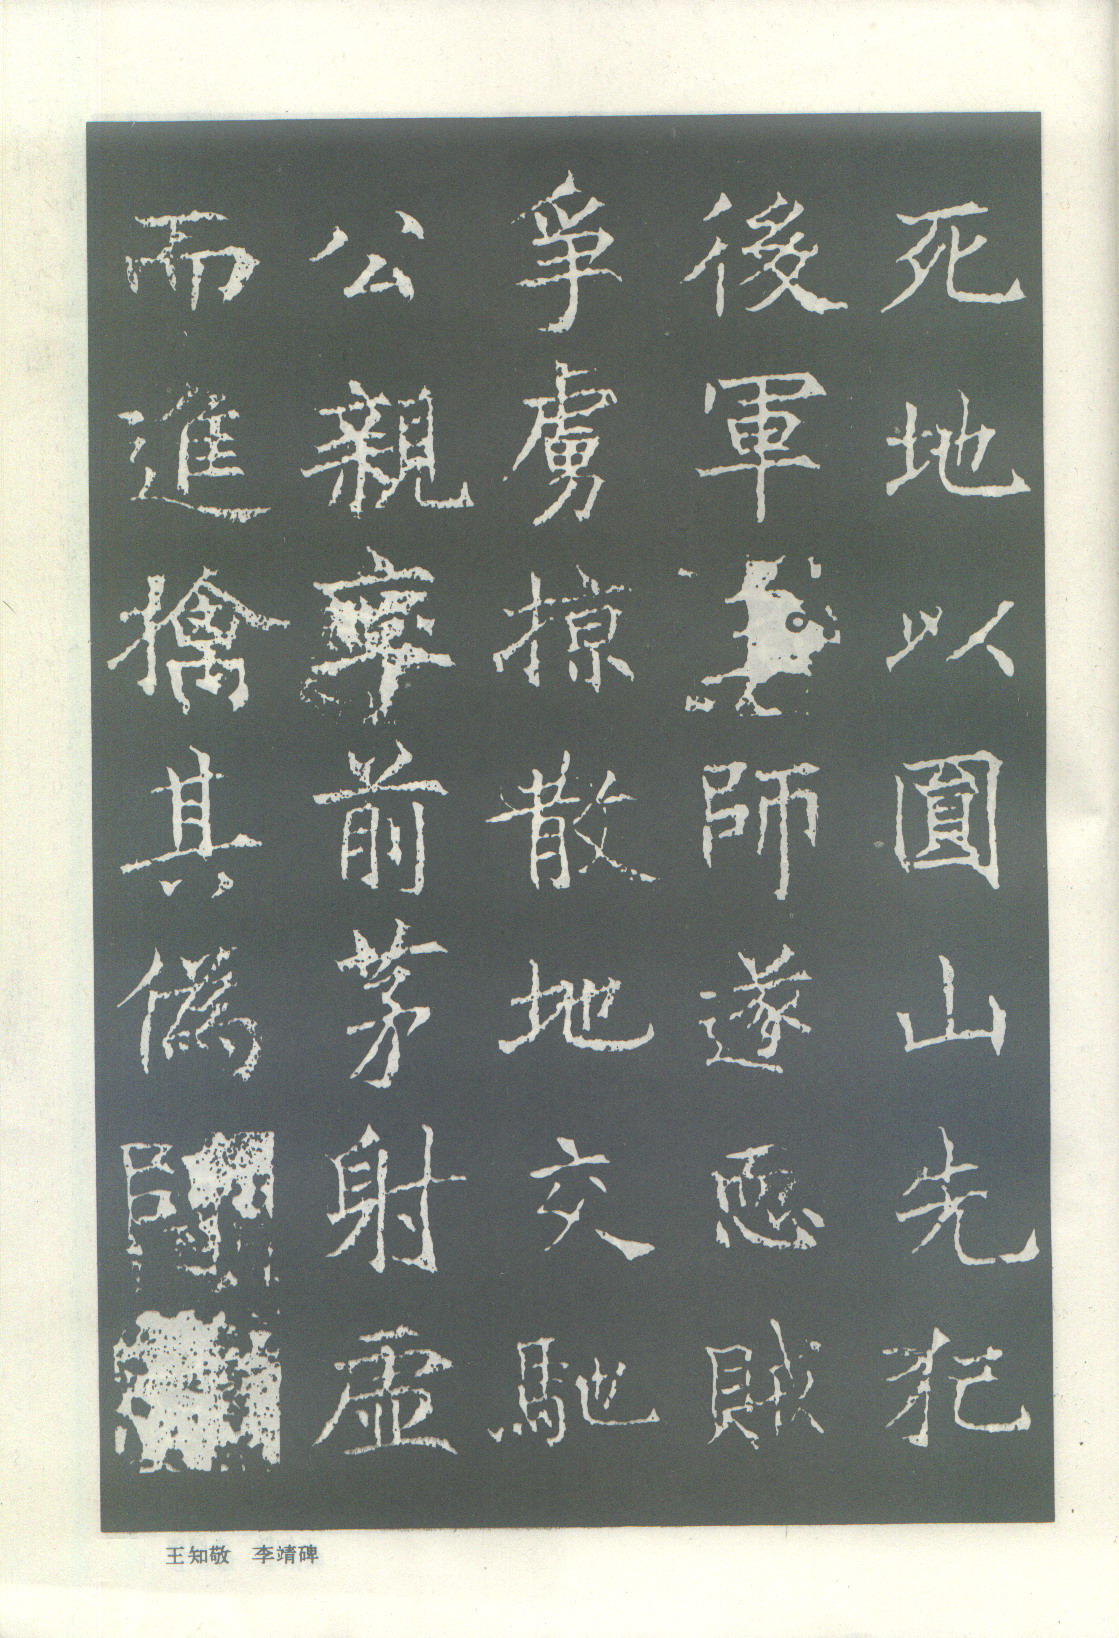 死地以圓山先犯
後軍師遂恧賊
爭虜掠散地交馳
公親率前茅射虛
而進擒其偽師
王知敬 李靖碑